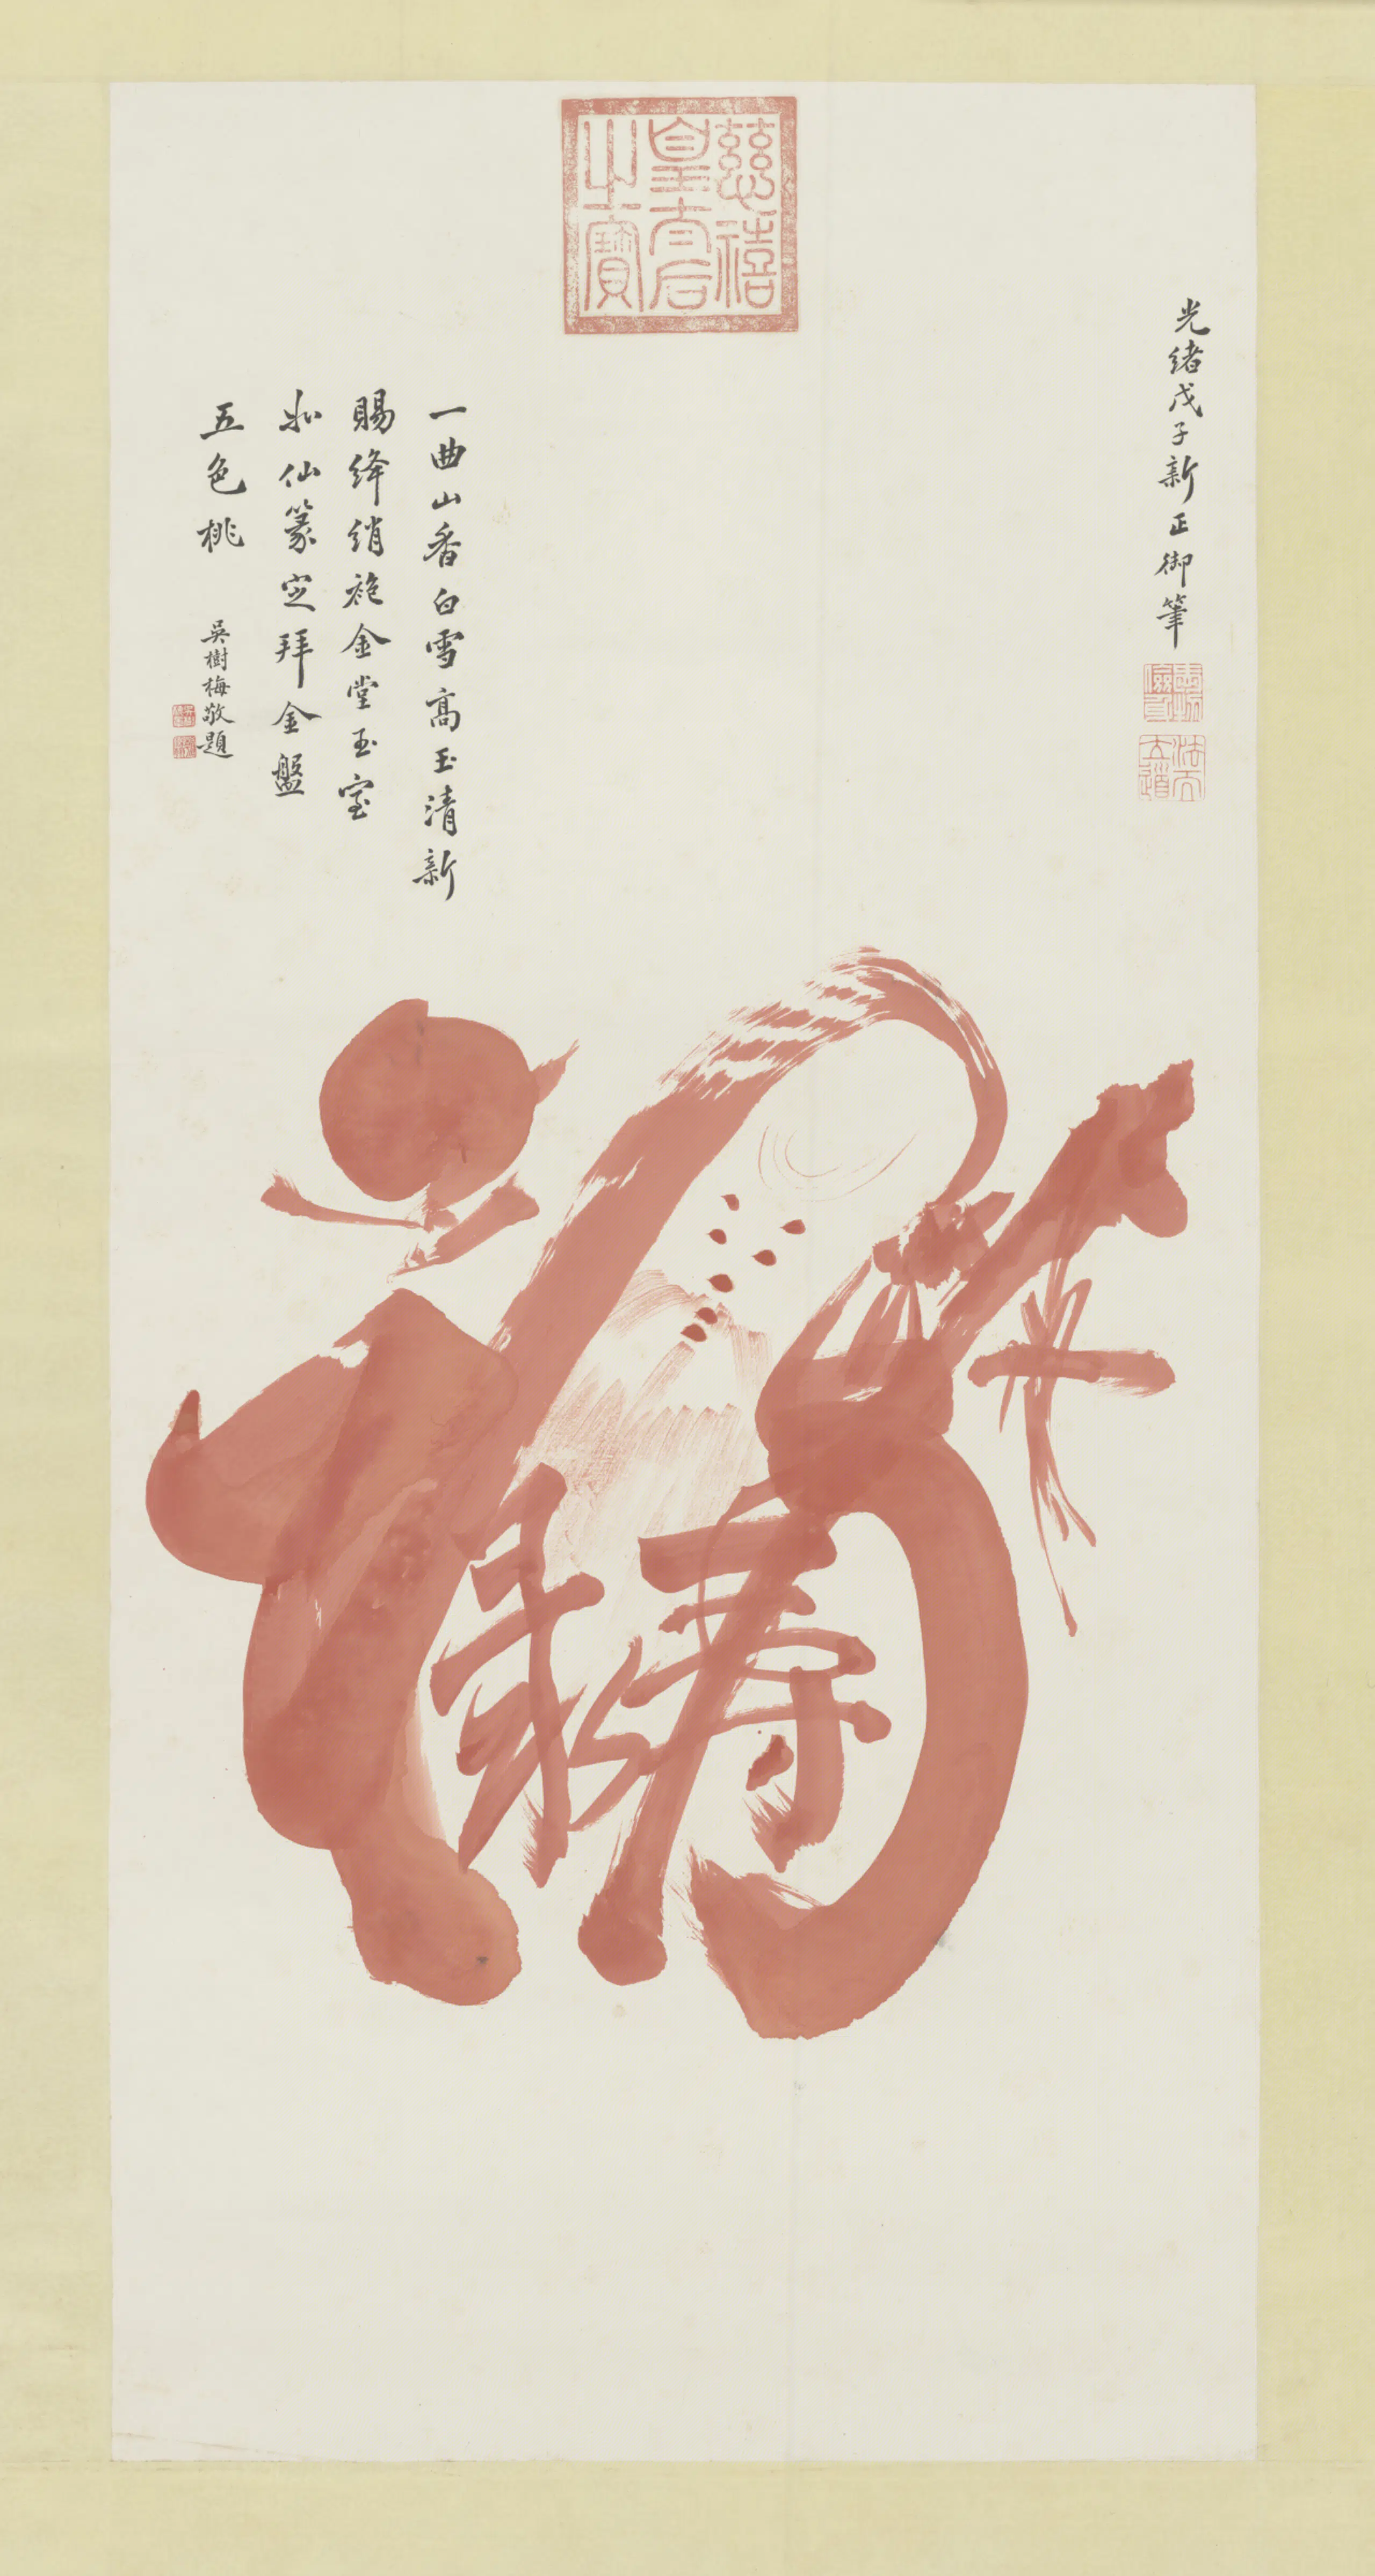 慈禧
皇太后
之寶
光緒戊子新正御筆
法天
立道
一曲山香白雪高玉清新
賜絳綃袍金堂玉室
仙篆定拜金盤
五色桃
吳樹梅敬題
福禄寿